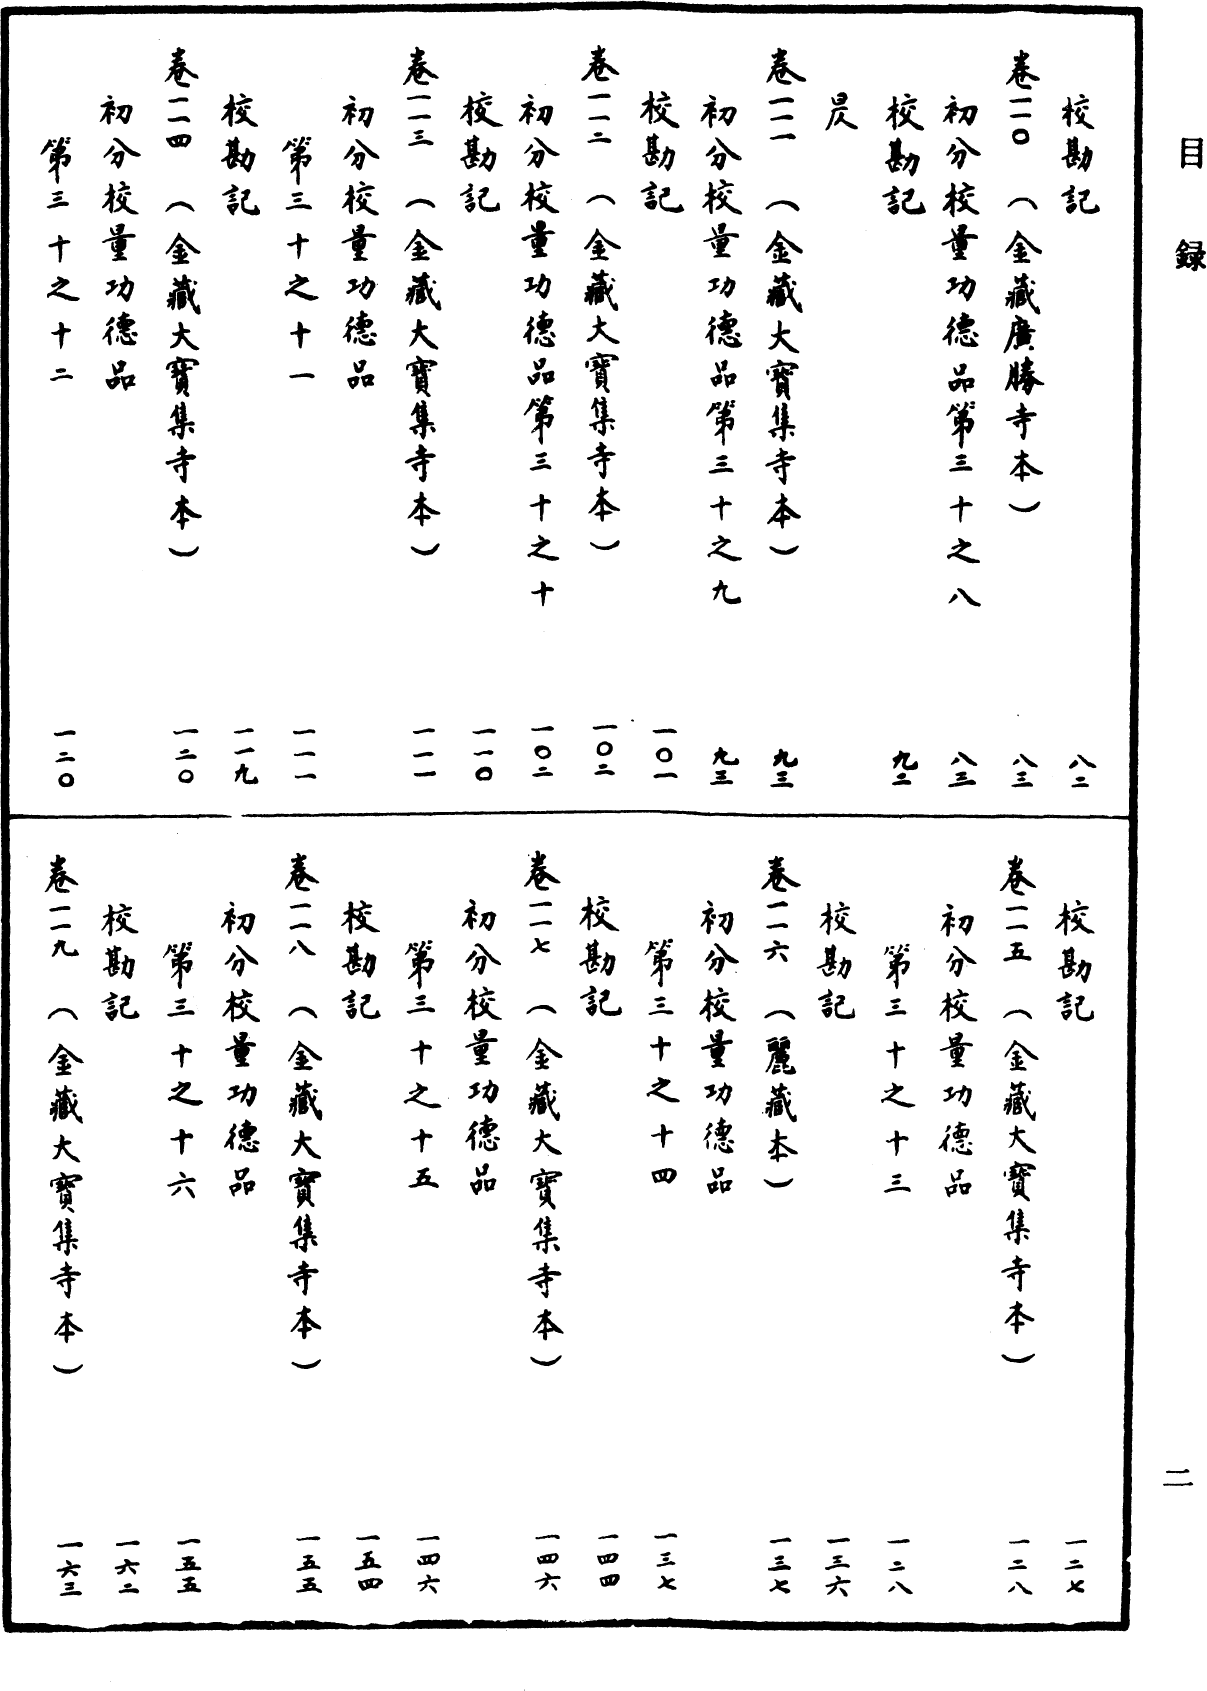 目録
校勘記 八二
卷一一〇（金藏廣勝寺本） 八三
初分校量功德品第三十之八 八三
校勘記 九二
昃
卷一一一（金藏大寶集寺本） 九三
初分校量功德品第三十之九 九三
校勘記 一〇一
卷一一二（金藏大寶集寺本） 一〇二
初分校量功德品第三十之十 一〇二
校勘記 一一〇
卷一一三（金藏大寶集寺本） 一一一
初分校量功德品
第三十之十一 一一一
校勘記 一一九
卷一一四（金藏大寶集寺本） 一二〇
初分校量功德品
第三十之十二 一二〇
校勘記 一二七
卷一一五（金藏大寶集寺本） 一二八
初分校量功德品
第三十之十三 一二八
校勘記 一三六
卷一一六（麗藏本） 一三七
初分校量功德品
第三十之十四 一三七
校勘記 一四四
卷一一七（金藏大寶集寺本） 一四六
初分校量功德品
第三十之十五 一四六
校勘記 一五四
卷一一八（金藏大寶集寺本） 一五五
初分校量功德品
第三十之十六 一五五
校勘記 一六二
卷一一九（金藏大寶集寺本） 一六三
二